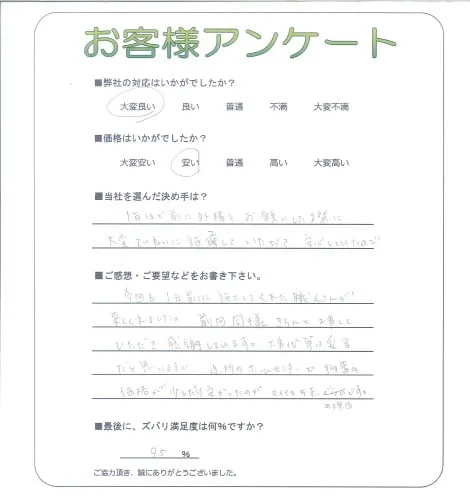 お客様アンケート
■弊社の対応はいかがでしたか？
大変良い 良い 普通 不満 大変不満
■価格はいかがでしたか？
大変安い 安い 普通 高い 大変高い
■当社を選んだ決め手は？
1年ほど前に外構をお願いした際に
大変ていねいに施工していただき 安心していたので
■ご感想・ご要望などをお書き下さい。
今回も 1年前に施工してくれた職人さんが
来てくれました。 前回同様 きちんと工事して
いただき 感謝しています。工事代等は妥当
だと思いますが 近所のホームセンターで 物置の
価格が 少しだけ安かったのが マイナス5% です。
の理由
■最後に、ズバリ満足度は何％ですか？
95 %
ご協力頂き、誠にありがとうございました。